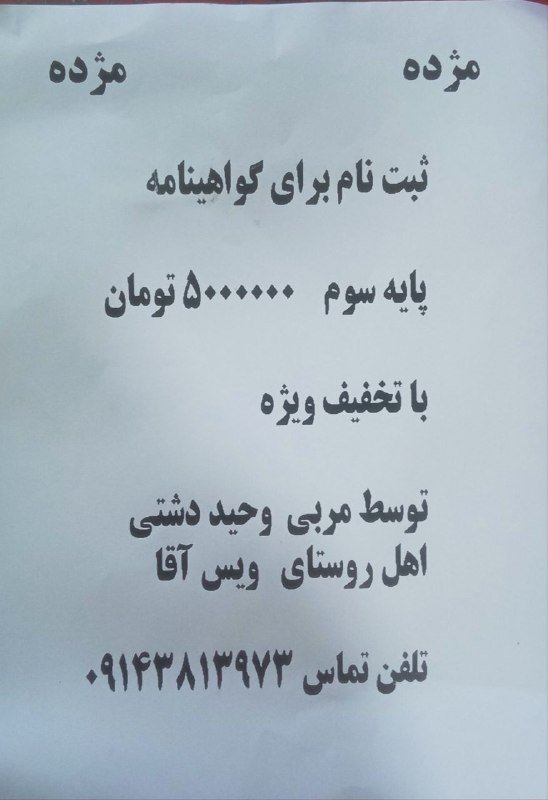 مژده مژده
ثبت نام برای گواهینامه
پایه سوم ۵۰۰۰۰۰۰ تومان
با تخفیف ویژه
توسط مربی وحید دشتی
اهل روستای ویس آقا
تلفن تماس ۰۹۱۴۳۸۱۳۹۷۳